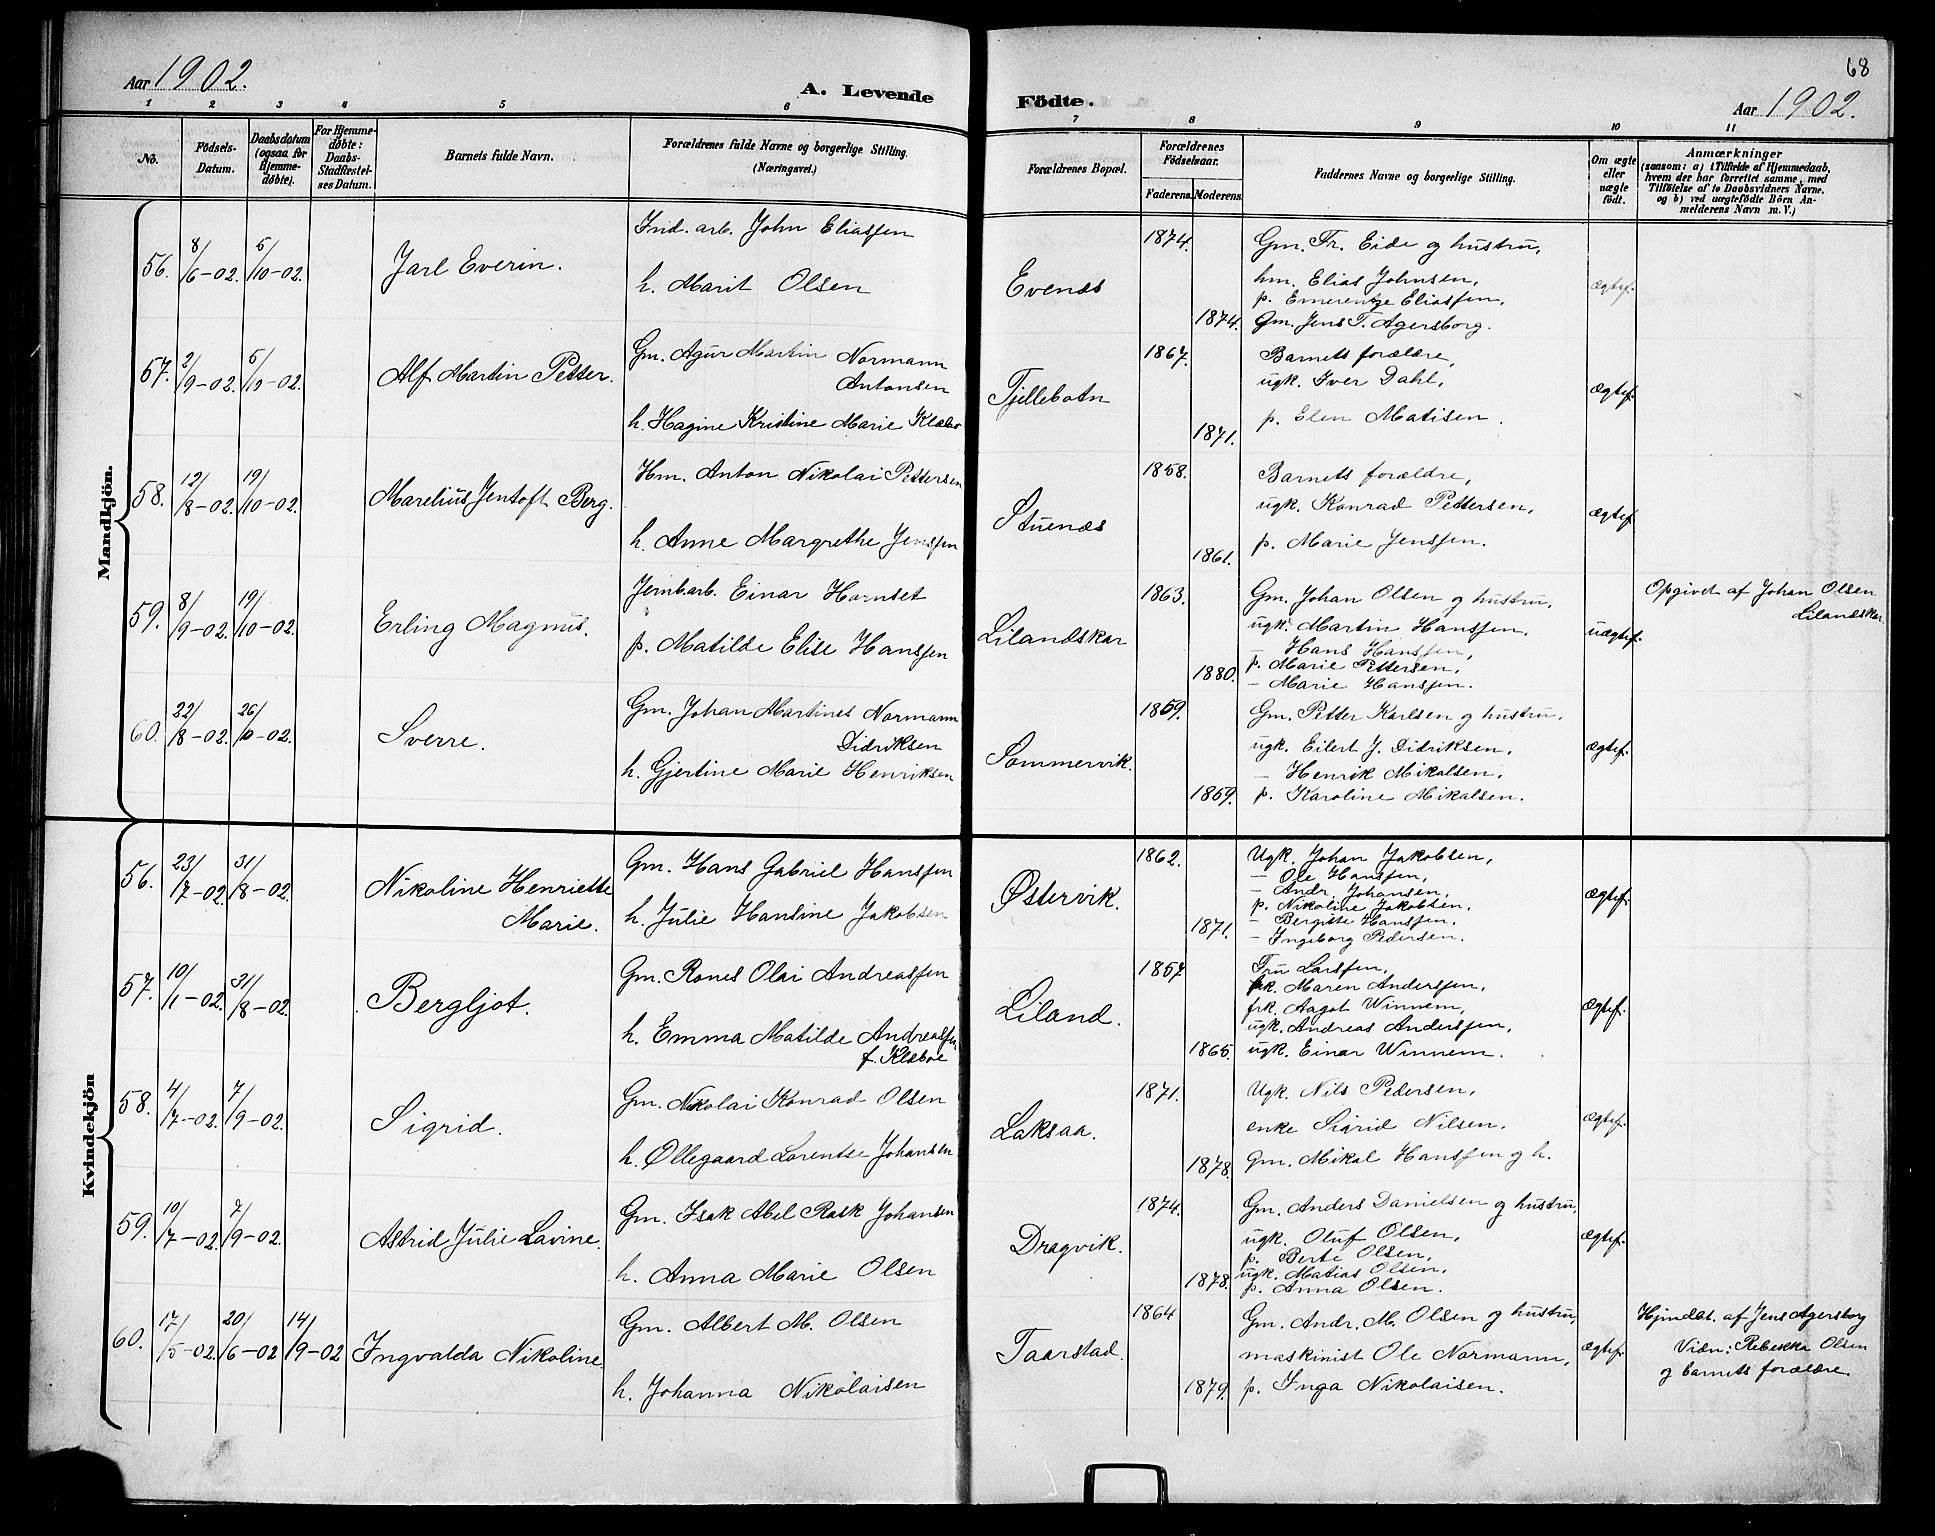 68
Aar 1902.
A. Levende Födte.
Aar 1902.
1 2 3 4 5 6 7 8 9 10 11
No.
Födsels-Datum.
Daabsdatum (ogsaa for Hjemme-døbte).
For Hjemme-døbte: Daabs-Stadfæstel-ses Datum.
Barnets fulde Navn.
Forældrenes fulde Navne og borgerlige Stilling. (Næringsvei.)
Forældrenes Bopæl.
Forældrenes Födselsaar.
Faderens. Moderens.
Faddernes Navne og borgerlige Stilling.
Om ægte eller uægte födt.
Anmærkninger
(saasom: a) i Tilfælde af Hjemmedaab,
hvem der har forrettet samme, med
Tilföielse af to Daabsvidners Navne.
og b) ved uægtefödte Börn An-
melderens Navn m. V.)
Mandkjön.
56. 8/6-02. 5/10-02. Jarl Everin.
Ind. arb. John Eliassen
h. Marit Olsen
Evenæs
1874.
1874.
Gm. Fr. Eide og hustru,
hm. Elias Johnsen,
p. Emerentze Eliassen,
Gm. Jens T. Agersborg.
ægtef.
57. 2/9-02. 5/10-02. Alf Martin Petter.
Gm. Agur Martin Normann
Antonsen
h. Hagine Kristine Marie Klæbo
Tjellebotn
1867.
1871.
Barnets forældre,
ugk. Iver Dahl,
p. Elen Matisen.
ægtef.
58. 12/8-02. 19/10-02. Marelius Jentoft Berg.
Hm. Anton Nikolai Pettersen
h. Anne Margrethe Jenssen
Stuenæs
1858.
1861.
Barnets forældre,
ugk. Konrad Pettersen,
p. Marie Jenssen.
ægtef.
59. 8/9-02. 19/10-02. Erling Magnus.
Jernb.arb. Einar Hornset
p. Matilde Elise Hanssen
Lilandskar
1863.
1880.
Gm. Johan Olsen og hustru.
ugk. Martin Hanssen.
— Hans Hanssen,
p. Marie Pettersen,
— Marie Hanssen.
uægtef.
Opgivet af Johan Olsen
Lilandskar
60. 22/8-02. 26/10-02. Sverre.
Gm. Johan Martines Normann
Didriksen
h. Gjertine Marie Henriksen
Sommervik.
1859.
1859.
Gm. Petter Karlsen og hustru.
ugk. Eilert J. Didriksen,
— Henrik Mikalsen,
p. Karoline Mikalsen.
ægtef.
Kvindekjön
56. 23/7-02. 31/8-02. Nikoline Henriette
Marie.
Gm. Hans Gabriel Hanssen
h. Julie Hansine Jakobsen
Østervik.
1862.
1871.
Ugk. Johan Jakobsen,
— Ole Hanssen,
— Andr. Johansen,
p. Nikoline Jakobsen,
— Bergitte Hanssen,
— Ingeborg Pedersen.
ægtef.
57. 10/1-02. 31/8-02. Bergljot.
Gm. Rones Olai Andreassen
h. Emma Matilde Andreassen
f. Klæboe
Liland.
1857
1865.
Fru Larssen,
frk. Maren Anderssen,
frk. Aagot Winnem,
ugk. Andreas Anderssen,
ugk. Einar Winnem.
ægtef.
58. 4/7-02. 7/9-02. Sigrid.
Gm. Nikolai Konrad Olsen
h. Øllegaard Lorentse Johansen
Laksaa.
1871.
1878.
Ugk. Nils Pedersen,
enke Sigrid Nilsen,
Gm. Mikal Hanssen og h.
ægtef.
59. 10/7-02. 7/9-02. Astrid Julie Lavine.
Gm. Isak Abel Rask Johansen
h. Anna Marie Olsen
Dragvik.
1874.
1878.
Gm. Anders Danielsen og hustru,
ugk. Oluf Olsen,
p. Berte Olsen,
ugk. Matias Olsen.
p. Anna Olsen.
ægtef.
60. 17/5-02. 20/6-02 14/9-02 Ingvalda Nikoline
Gm. Albert M. Olsen
h. Johanna Nikolaisen
Taarstad.
1864
1879.
Gm. Andr. M. Olsen og hustru,
maskinist Ole Normann,
p. Inga Nikolaisen.
ægtef.
Hjmdbt. af Jens Agersborg
Vidn: Rebekka Olsen
og barnets forældre